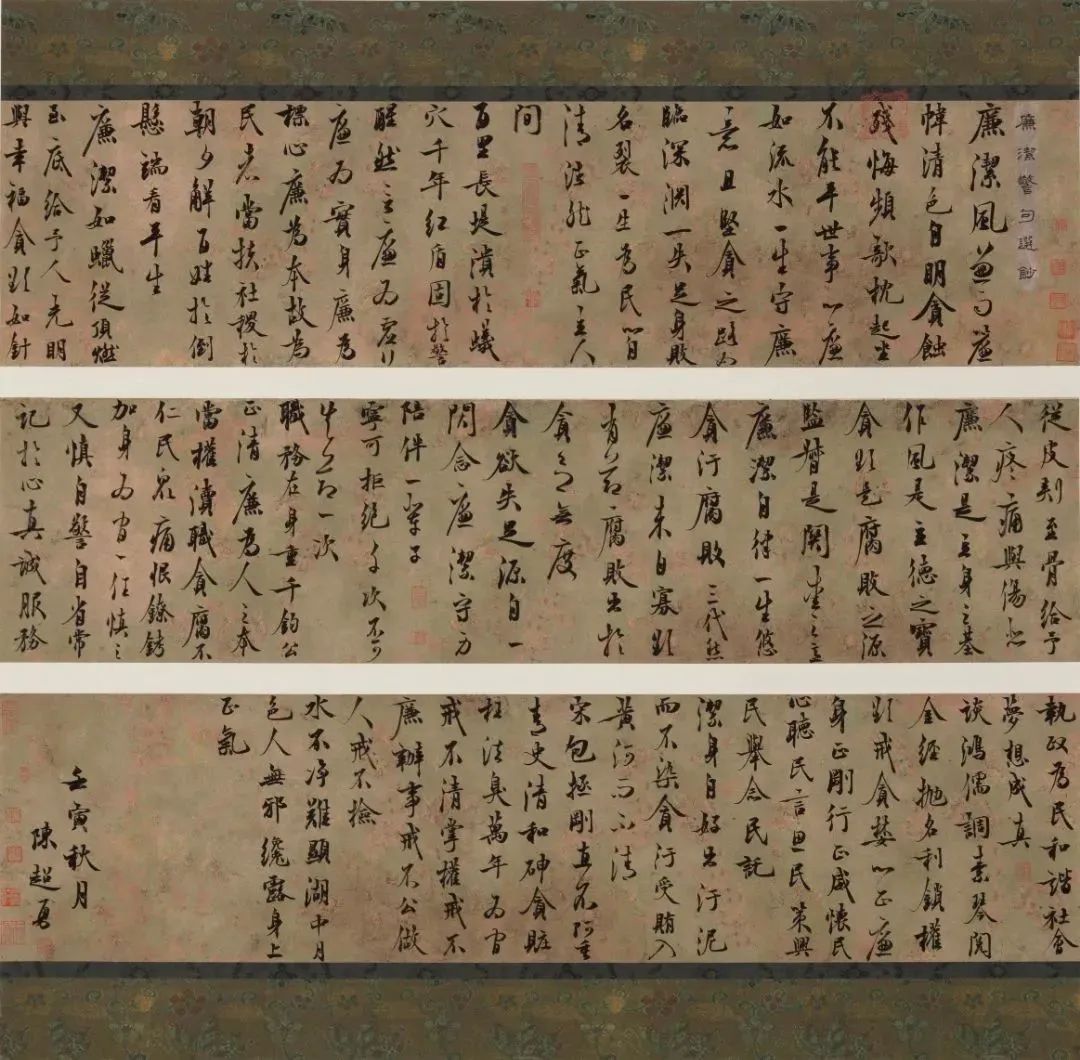 廉潔警句選鈔
廉潔風
幃清色自明貪蝕
錢悔頻欹枕起坐
不能平世事以廉
如流水一生守廉
意且堅貪之路如
臨深淵一失足身敗
名裂一生為民心自
清 正氣 人
間
百里長堤潰於蟻
穴千年紅盾固於警
醒 之廉為
廉為實身廉為
標心廉為本故為
民者當扶社稷於
朝夕解百姓於倒
懸端看平生
廉潔如蠟從頂燃
至底給予人光明
與幸福貪欲如針
從皮刺至骨給予
人疼痛與傷悲
廉潔是立身之基
作風是立德之寶
貪欲是腐敗之源
監督是關愛之意
廉潔自律一生悠
貪汙腐敗三代愁
廉潔來自寡欲
有節腐敗出於
貪之無度
貪欲失足源自一
閃念廉潔守力
陪伴一輩子
寧可拒絕千次不可
失節一次
職務在身重千鈞公
正清廉為人之本
當權瀆職貪腐不
仁民眾痛恨鐐銬
加身為官一任慎之
又慎自警自省常
記於心真誠服務
執政為民和諧社會
夢想成真
談鴻儒調素琴閱
金經拋名利鎖權
欲戒貪婪以正廉
身正剛行正威懷民
心聽民言思民策興
民舉念民託
潔身自好出汙泥
而不染貪汙受賄入
黃河而不清
宋包拯剛直不阿垂
青史清和珅貪贓
枉法臭萬年為官
戒不清掌權戒不
廉辦事戒不公做
人戒不撿
水不淨難顯湖中月
色人無邪纔露身上
正氣
壬寅秋月
陳超勇